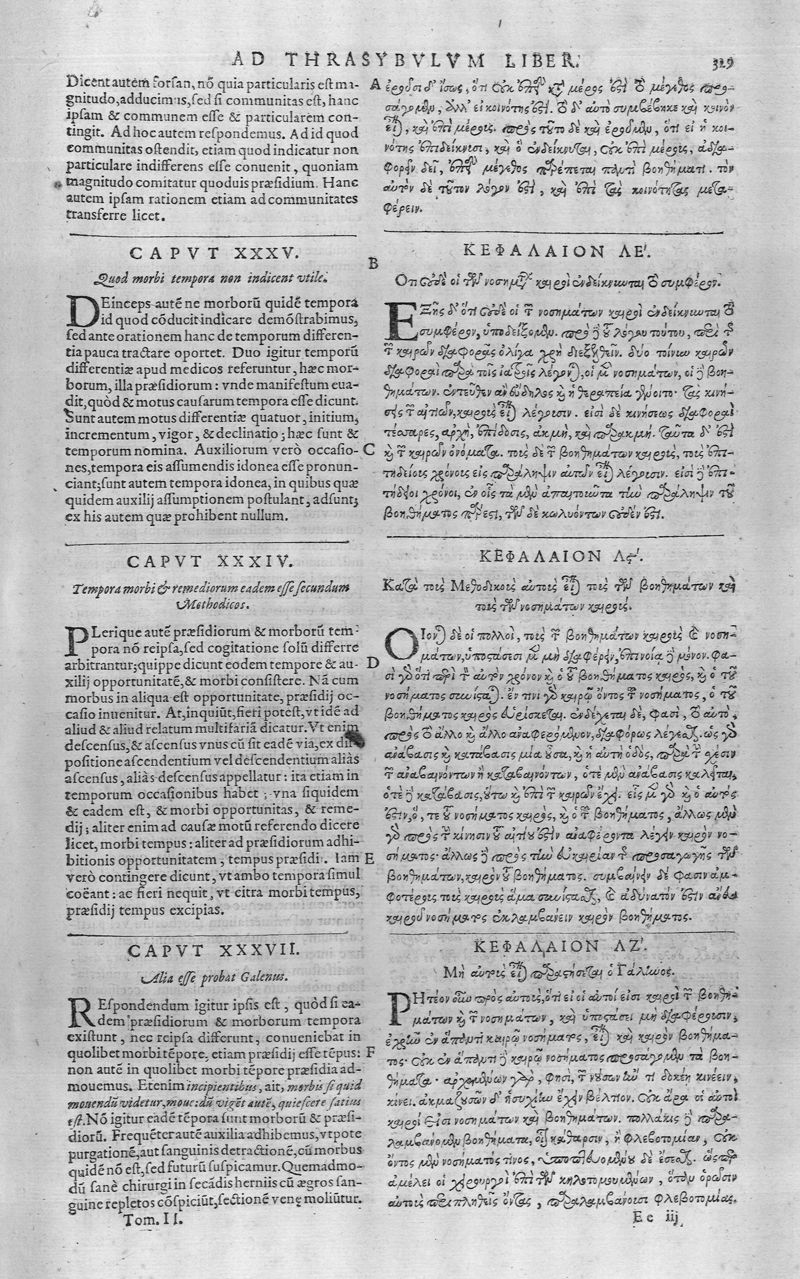 AD THRASYBVLVM LIBER.
319
Dicent autem forsan, nõ quia particularis est ma-
gnitudo, adducimus, sed si communitas est, hanc
ipsam & communem esse & particularem con-
tingit. Ad hoc autem respondemus. Ad id quod
communitas ostendit, etiam quod indicatur non
particulare indifferens esse conuenit, quoniam
magnitudo comitatur quoduis præsidium. Hanc
autem ipsam rationem etiam ad communitates
transferre licet.
CAPVT XXXV.
Quod morbi tempora non indicent vtile.
DEinceps autẽ ne morborũ quidẽ tempora
id quod cõducit indicare demõstrabimus,
sed ante orationem hanc de temporum differen-
tia pauca tractare oportet. Duo igitur temporũ
differentiæ apud medicos referuntur, hæc mor-
borum, illa præsidiorum: vnde manifestum eua-
dit, quòd & motus causarum tempora esse dicunt.
Sunt autem motus differentiæ quatuor, initium,
incrementum, vigor, & declinatio; hæc sunt &
temporum nomina. Auxiliorum verò occasio-
nes, tempora eis assumendis idonea esse pronun-
ciant; sunt autem tempora idonea, in quibus quæ
quidem auxilij assumptionem postulant, adsunt;
ex his autem quæ prohibent nullum.
CAPVT XXXIV.
Tempora morbi & remediorum eadem esse secundum
Methodicos.
PLerique autẽ præsidiorum & morborũ tem-
pora nõ reipsa, sed cogitatione solũ differre
arbitrantur; quippe dicunt eodem tempore & au-
xilij opportunitatẽ, & morbi consistere. Nã cum
morbus in aliqua est opportunitate, præsidij oc-
casio inuenitur. At, inquiũt, fieri potest, vt idẽ ad
aliud & aliud relatum multifariã dicatur. Vt enim
descensus, & ascensus vnus cũ sit eadẽ via, ex dis
positione ascendentium vel descendentium aliàs
ascensus, aliàs descensus appellatur: ita etiam in
temporum occasionibus habet; vna siquidem
& eadem est, & morbi opportunitas, & reme-
dij; aliter enim ad causæ motũ referendo dicere
licet, morbi tempus: aliter ad præsidiorum adhi-
bitionis opportunitatem, tempus præsidi. Iam
verò contingere dicunt, vt ambo tempora simul
coëant: ac fieri nequit, vt citra morbi tempus,
præsidij tempus excipias.
CAPVT XXXVII.
Alia esse probat Galenus.
REspondendum igitur ipsis est, quòd si ea-
dem præsidiorum & morborum tempora
existunt, nec reipsa differunt, conueniebat in
quolibet morbi tẽpore, etiam præsidij esse tẽpus:
non autẽ in quolibet morbi tempore præsidia ad-
mouemus. Etenim incipientibus, ait, morbis si quid
mouendũ videtur, moue: dũ vigẽt autẽ, quiescere satius
est. Nõ igitur eadẽ tẽpora sunt morborũ & præsi-
diorũ. Frequẽter autẽ auxilia adhibemus, vt pote
purgationẽ, aut sanguinis detractionẽ, cũ morbus
quidẽ nõ est, sed futurũ suspicamur. Quemadmo-
dũ sanè chirurgi in secãdis herniis cũ ægros san-
guine repletos cõspiciũt, sectionẽ venę moliũtur.
Tom. II.
A
B
C
D
E
F
ἐροῦσι δ' ἴσως, ὅτι οὐκ ἐπεὶ κατὰ μέρος ἐστὶ τὸ μέγεθος προσ-
αγόμεθα, ἀλλ' εἰ κοινότης ἐστὶ. τὸ δ' αὐτὸ συμβέβηκε καὶ κοινὸν
εἶναι, καὶ ἐπὶ μέρους. πρὸς τοῦτο δὲ καὶ ἐροῦμεν, ὅτι εἰ ἡ κοι-
νότης ἐπιδείκνυσι, καὶ ὃ ἐνδείκνυται, οὐκ ἐπὶ μέρους, ἀδιά-
φορον δεῖ, ἐπεὶ μέγεθος παρέπεται παντὶ βοηθήματι. τὸν
αὐτὸν δὲ τοῦτον λόγον ἐστὶ, καὶ ἐπὶ τὰς κοινότητας μετα-
φέρειν.
ΚΕΦΑΛΑΙΟΝ ΛΕ'.
Οτι οὐδὲ οἱ τῶν νοσημάτων καιροὶ ἐνδείκνυνται τὸ συμφέρον.
ΕΞῆς δ' ὅτι οὐδὲ οἱ τῶν νοσημάτων καιροὶ ἐνδείκνυνται τὸ
συμφέρον, ὑποδείξομεν. πρὸ δὲ τοῦ λόγου τούτου, περὶ τῆς
τῶν καιρῶν διαφορᾶς ὀλίγα χρὴ διεξελθεῖν. δύο τοίνυν καιρῶν
διαφοραὶ παρὰ τοῖς ἰατροῖς λέγονται, οἱ μὲν νοσημάτων, οἱ δὲ βοη-
θημάτων. ἐντεῦθεν
τέσσαρες, ἀρχὴ, ἐπίδοσις, ἀκμὴ, καὶ παρακμή. ταῦτα δ' ἐστὶ
καὶ τῶν καιρῶν ὀνόματα. τοὺς δὲ τῶν βοηθημάτων καιροὺς, τοὺς ἐπι-
τηδείους χρόνους εἰς παράληψιν αὐτῶν εἶναι λέγουσιν. εἰσὶ δὲ ἐπι-
τήδειοι χρόνοι, ἐν οἷς τὰ μὲν ἀπαιτοῦντα τὴν παράληψιν τοῦ
βοηθήματος πάρεστι, τῶν δὲ κωλυόντων οὐδέν ἐστι.
ΚΕΦΑΛΑΙΟΝ Λς'.
Κατὰ τοὺς Μεθοδικοὺς αὐτοὺς εἶναι τοὺς τῶν βοηθημάτων καὶ
τοὺς τῶν νοσημάτων καιρούς.
ΟΙονται δὲ οἱ πολλοὶ, τοὺς τῶν βοηθημάτων καιροὺς καὶ νοση-
μάτων, ὑποστάσει μὲν μὴ διαφέρειν, ἐπινοίᾳ δὲ μόνον. φα-
σὶ γὰρ ὅτι περὶ τὸν αὐτὸν χρόνον καὶ ὁ βοηθήματος καιρὸς, καὶ ὁ τοῦ
νοσήματος συνίσταται. ἔν τινι γὰρ καιρῷ ὄντος τοῦ νοσήματος, ὁ τοῦ
βοηθήματος καιρὸς εὑρίσκεται. ἐνδέχεται δὲ, φασὶ, τὸ αὐτὸ,
πρὸς τὸ ἄλλο καὶ ἄλλο ἀναφερόμενον, διαφόρως λέγεσθαι. ὡς γὰρ
ἀνάβασις καὶ κατάβασις μία οὖσα, καὶ ἡ αὐτὴ ὁδὸς, παρὰ τὴν σχέσιν
τῶν ἀναβαινόντων ἢ καταβαινόντων, ὁτὲ μὲν ἀνάβασις καλεῖται,
ὁτὲ δὲ κατάβασις, οὕτω καὶ ἐπὶ τῶν καιρῶν ἔχει. εἷς μὲν γὰρ καὶ ὁ αὐτός
ἐστιν, ὅ, τε τοῦ νοσήματος καιρὸς, καὶ ὁ τοῦ βοηθήματος, ἄλλως μὲν
γὰρ πρὸς τὴν κίνησιν τοῦ αἰτίου ἐστὶν ἀναφέροντα λέγειν καιρὸν νο-
σήματος· ἄλλως δὲ πρὸς τὴν εὐκαιρίαν τῆς προσαγωγῆς τῶν
βοηθημάτων, καιρὸν τοῦ βοηθήματος. συμβαίνειν δέ φασιν ἀμ-
φοτέρους τοὺς καιροὺς ἅμα συνίστασθαι, καὶ ἀδύνατόν ἐστιν ἄνευ
καιροῦ νοσήματος ἐκλαμβάνειν καιρὸν βοηθήματος.
ΚΕΦΑΛΑΙΟΝ ΛΖ'.
Μὴ αὐτοὺς εἶναι παραστήσεται ὁ Γαληνός.
ΡΗτέον οὖν πρὸς αὐτοὺς, ὅτι εἰ οἱ αὐτοί εἰσι καιροὶ τῶν βοηθη-
μάτων καὶ τῶν νοσημάτων, καὶ ὑποστάσει μὴ διαφέρουσιν,
ἐχρῆν ἐν ἅπαντι καιρῷ νοσήματος, εἶναι καὶ καιρὸν βοηθήμα-
τος· οὐκ ἐν ἅπαντι δὲ καιρῷ νοσήματος προσάγομεν τὰ βοη-
θήματα. ἀρχομένων γὰρ, φησὶ, τῶν νούσων ἤν τι δοκέῃ κινέειν,
κίνει. ἀκμαζουσῶν δ' ἡσυχίην ἔχειν βέλτιον. οὐκ ἄρα οἱ αὐτοὶ
καιροὶ εἰσὶ νοσημάτων καὶ βοηθημάτων. πολλάκις δὲ παρα-
λαμβάνομεν βοηθήματα, οἷον κάθαρσιν, ἢ φλεβοτομίαν, οὐκ
ὄντος μὲν νοσήματός τινος, ὑποπτευομένου δὲ ἔσεσθαι. ὥσπερ
ἀμέλει οἱ χειρουργοὶ ἐπὶ τῶν κηλοτομουμένων, ὅταν ὁρῶσιν
αὐτοὺς περιπληθεῖς ὄντας, παραλαμβάνουσι φλεβοτομίας.
Ee iij